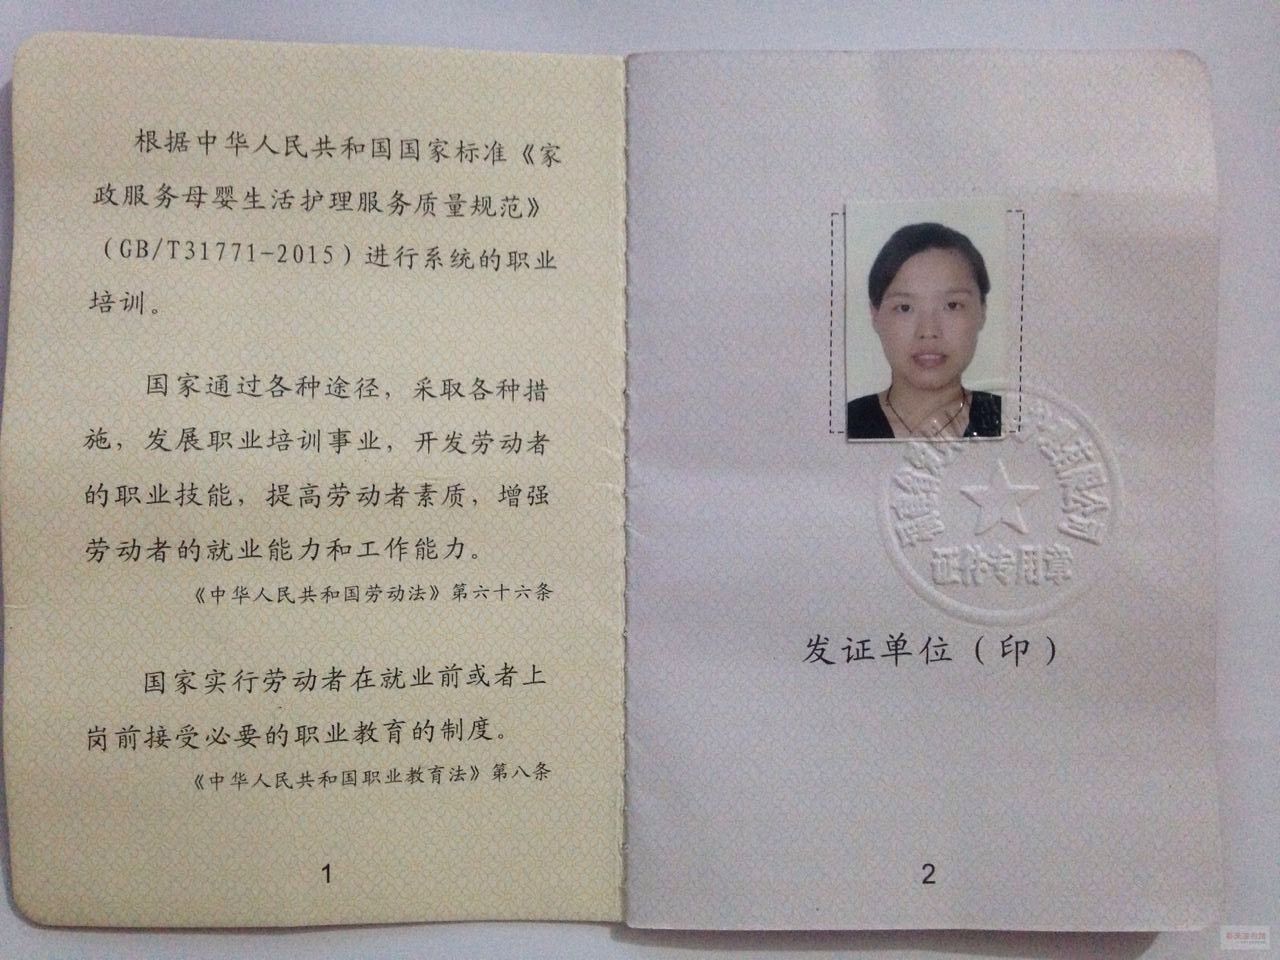 根据中华人民共和国国家标准《家
政服务母婴生活护理服务质量规范》
（GB/T31771-2015）进行系统的职业
培训。
国家通过各种途径，采取各种措
施，发展职业培训事业，开发劳动者
的职业技能，提高劳动者素质，增强
劳动者的就业能力和工作能力。
《中华人民共和国劳动法》第六十六条
国家实行劳动者在就业前或者上
岗前接受必要的职业教育的制度。
《中华人民共和国职业教育法》第八条
1
证件专用章
发证单位（印）
2